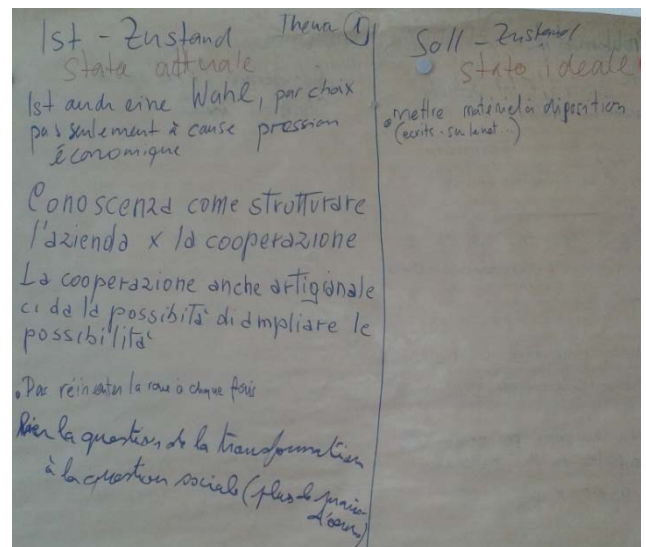 Ist - Zustand Thema 1
Stato attuale
Ist auch eine Wahl, par choix
pas seulement à cause pression
économique
Conoscenza come strutturare
l'azienda x la cooperazione
La cooperazione anche artigianale
ci da la possibiltà di ampliare le
possibilità
• Pas réinventer la roue à chaque fois
Lier la question de la transformation
à la question sociale (plus de
d'œuvre)
Soll - Zustand
Stato ideale
• mettre matériel à disposition
(écrits - sur le net...)